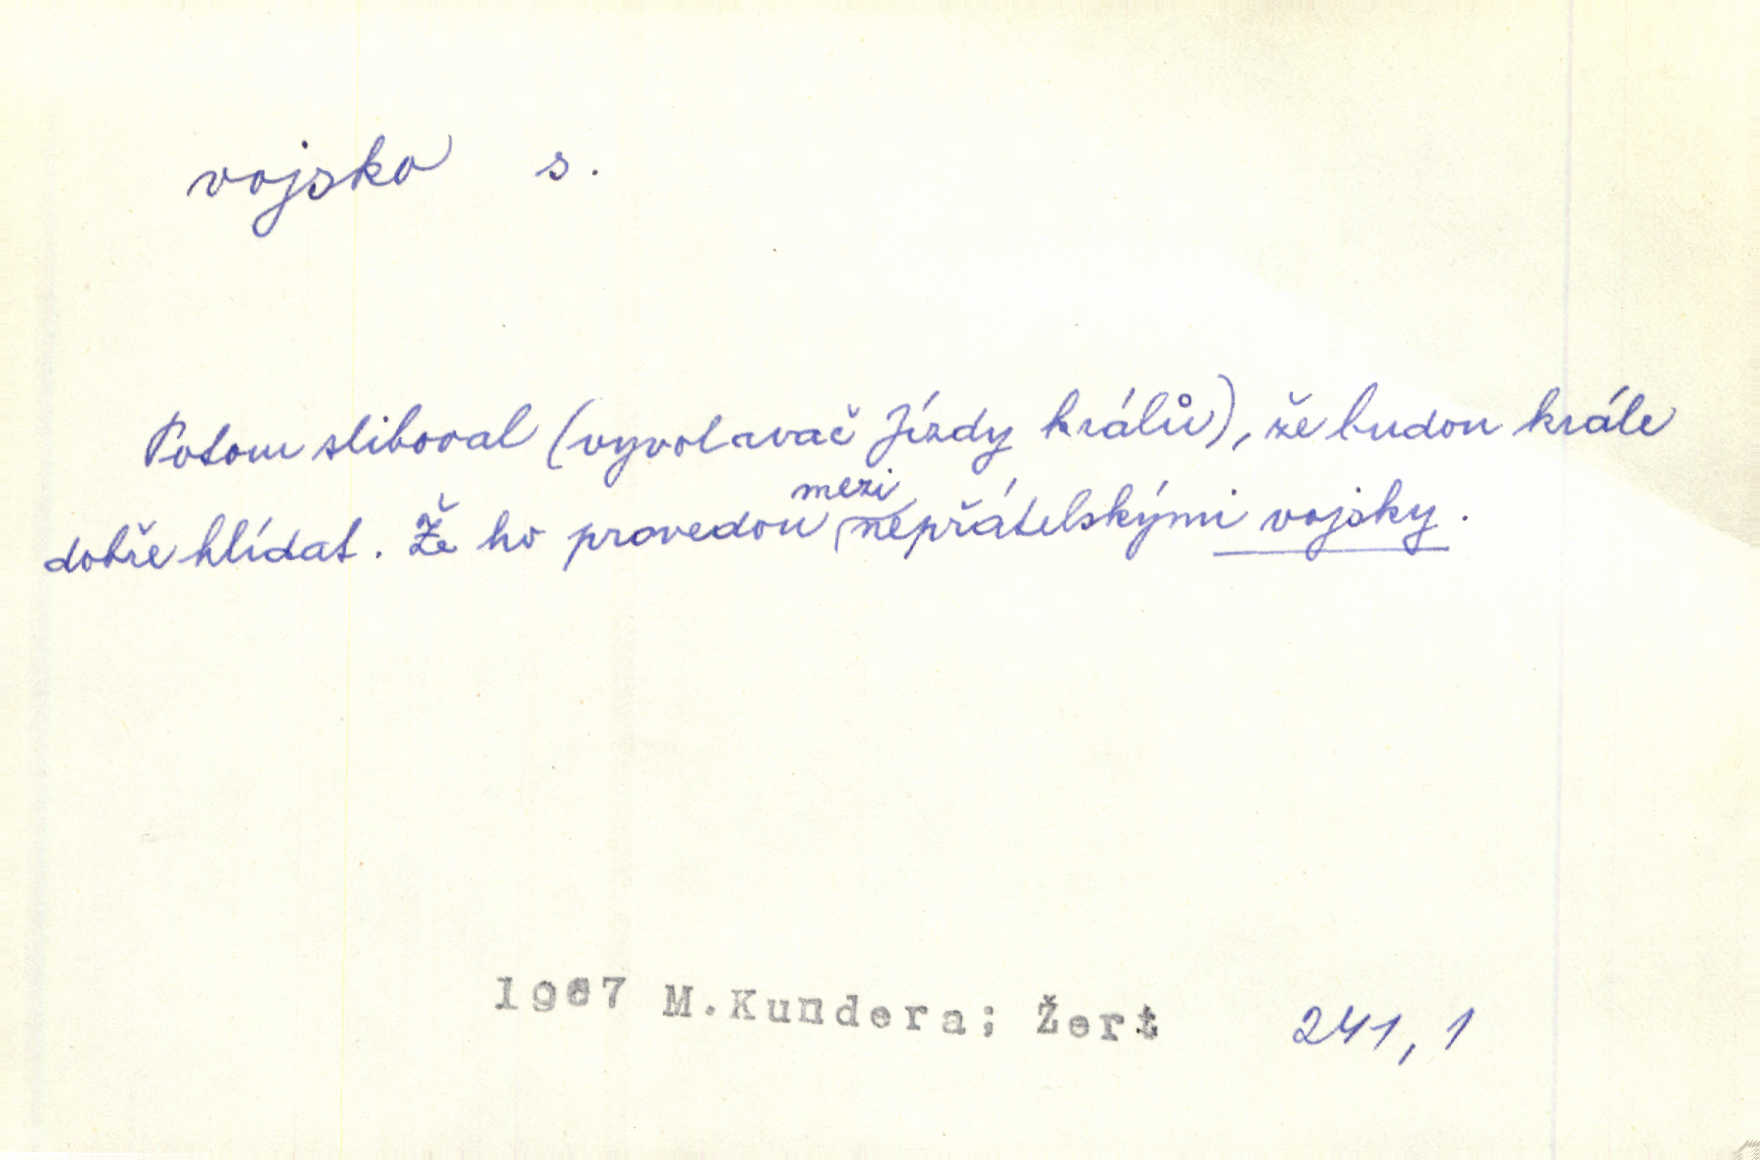 vojsko s.
Potom sliboval (vyvolavač Jízdy králů), že budou krále
dobře hlídat. Že ho provedou mezi nepřátelskými vojsky.
1967 M.Kundera; Žert 241,1